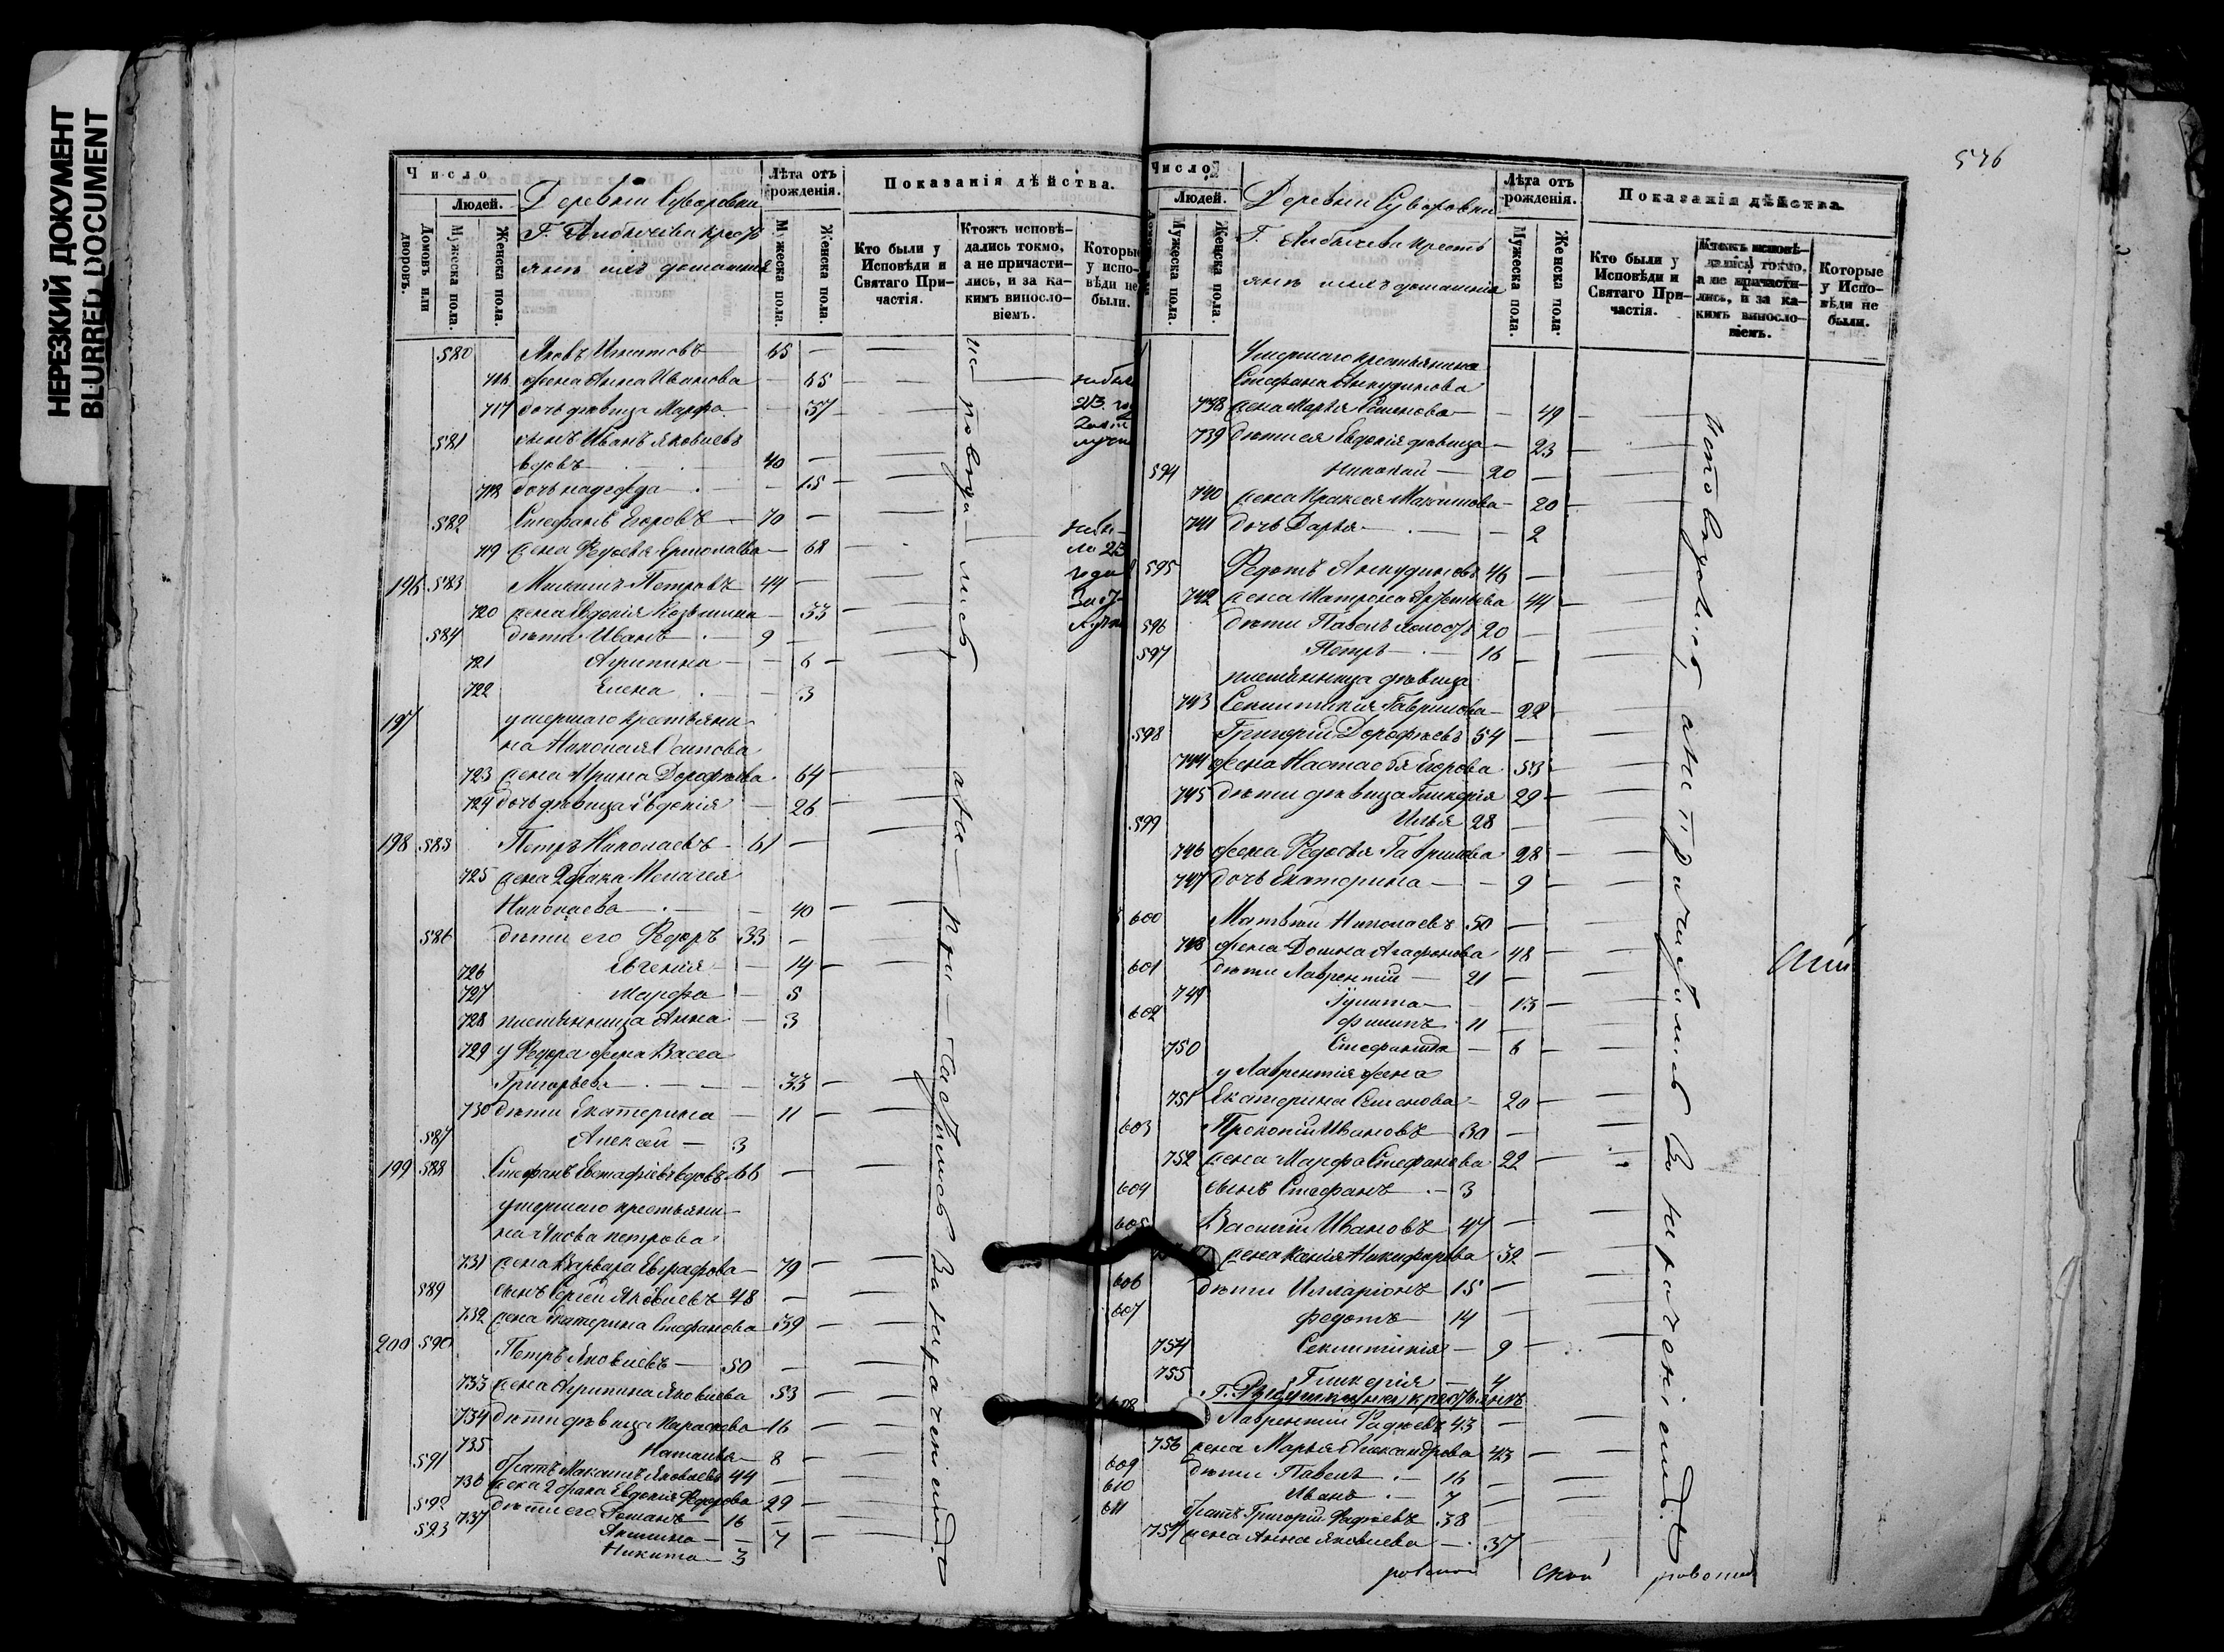 НЕРЕЗКИЙ ДОКУМЕНТ
BLURRED DOCUMENT
Число
Людей.
Домовъ или дворовъ.
Мужеска пола.
Женска пола.
Деревни Суворовки
Г. крестьянъ домашнія
Лѣта отъ рожденія.
Мужеска пола.
Женска пола.
Показанія дѣйства.
Кто были у Исповѣди и Святаго Причастія.
Ктожъ исповѣдались токмо, а не причастились, и за какимъ винословіемъ.
Которые у исповѣди не были.
580 Яковъ 65 —
716 жена Анна Ивановa — 65 —
717 дочь дѣвица Марфа — 37 —
581 сынъ Иванъ Яковлевъ
вдовъ — 40 —
718 дочь Надежда — 15 —
582 Стефанъ Егоровъ 70 —
719 жена Федосья Ермолаева — 68 —
196 583 Петровъ 44 —
720 жена Евдокія Козьмина — 33 —
584 дѣти Иванъ 9 —
721 Агрипина — 6 —
722 Елена — 3
197 умершаго крестьяни-
на Николая Осипова
723 жена Ирина Дорофѣева 64 —
724 дочь дѣвица Евдокія — 26 —
198 585 Петръ Николаевъ 61 —
725 жена 2 брака Пелагея
Николаева — 40 —
586 дѣти его Федоръ 33 —
726 Евгенія — 14 —
727 Марфа — 5
728 племянница Анна — 3
729 у Федора жена Васса
Григорьева — 33 —
730 дѣти Екатерина — 11 —
587 Алексѣй — 3
199 588 Стефанъ Евстафіевъ вдовъ 66 —
умершаго крестьяни-
на Якова Петрова
731 жена Варвара Евграфова — 79 —
589 сынъ Сергѣй Яковлевъ 48 —
732 жена Екатерина Стефанова 39 —
200 590 Петръ Яковлевъ — 50 —
733 жена Агрипина Яковлева 53 —
734 дѣти дѣвица Параскева 16 —
735 Наталья 8 —
591 братъ Максимъ Яковлевъ 44 —
736 жена 2 брака Евдокія Федорова 29 —
592 дѣти его Романъ 16 —
737 Акилина — 7 —
593 Никита — 3
исповѣдались а не причастились за нераченіемъ
Число
Людей.
Мужеска пола.
Женска пола.
Деревни Суворовки
Г. крестьянъ домашнія
Лѣта отъ рожденія.
Мужеска пола.
Женска пола.
Показанія дѣйства
Кто были у Исповѣди и Святаго Причастія.
Ктожъ исповѣдались токмо, а не причастились, и за какимъ винословіемъ.
Которые у Исповѣди не были.
Умершаго крестьянина
Стефана Анкудинова
738 жена Марья Семенова — 49 —
739 дѣти ея Евдокія дѣвица — 23 —
594 Николай — 20 —
740 жена Максимова — 20 —
741 дочь Дарья — 2
595 Федотъ Анкудиновъ 46 —
742 жена Матрона Артемьева 44 —
596 дѣти Павелъ холостъ 20 —
597 Петръ — 16 —
племянница дѣвица
743 Секлитикія Гаврилова — 22 —
598 Григорій Дорофѣевъ 54 —
744 жена Настасья Егорова 53 —
745 дѣти дѣвица Гликерія 29 —
599 Илья 28 —
746 жена Федосья Гаврилова 28 —
747 дочь Екатерина — 9 —
600 Матвѣй Николаевъ 50 —
748 жена Домна Агафонова 48 —
601 дѣти Лаврентій — 21 —
749 Іулита — 13 —
602 Филипъ 11 —
750 Стефанида — 6 —
у Лаврентія жена
751 Екатерина Семенова — 20 —
603 Прокопій Ивановъ 30 —
752 жена Марфа Стефанова 22 —
604 сынъ Стефанъ — 3
605 Василій Ивановъ 47 —
жена Ксенія Никифорова 32 —
606 дѣти Илларіонъ 15 —
607 Федотъ 14 —
754 Секлитикія — 9 —
755 Гликерія — 4
608 Лаврентій 43 —
756 жена Марья Александрова 43 —
609 дѣти Павелъ — 16 —
610 Иванъ — 7 —
611 братъ Григорій 38 —
757 жена Анна Яковлева — 37
исповѣдались а не причастились за нераченіемъ